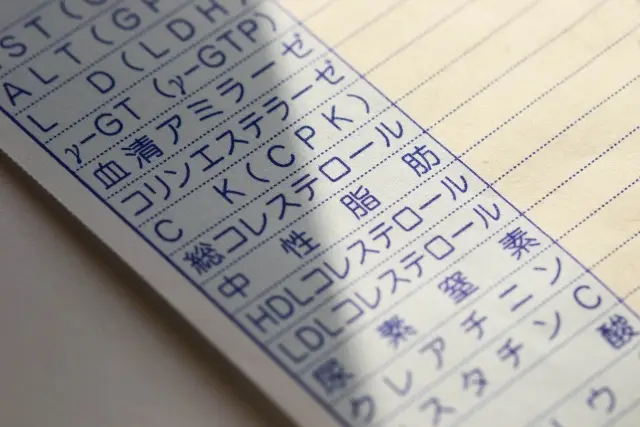 ST(G
ALT(GP
L D(LDH)
γ-GT(γ-GTP)
血清アミラーゼ
コリンエステラーゼ
C K(CPK)
総コレステロール
中性脂肪
HDLコレステロール
LDLコレステロール
尿素窒素
クレアチニン
スタチンC
酸
ウ